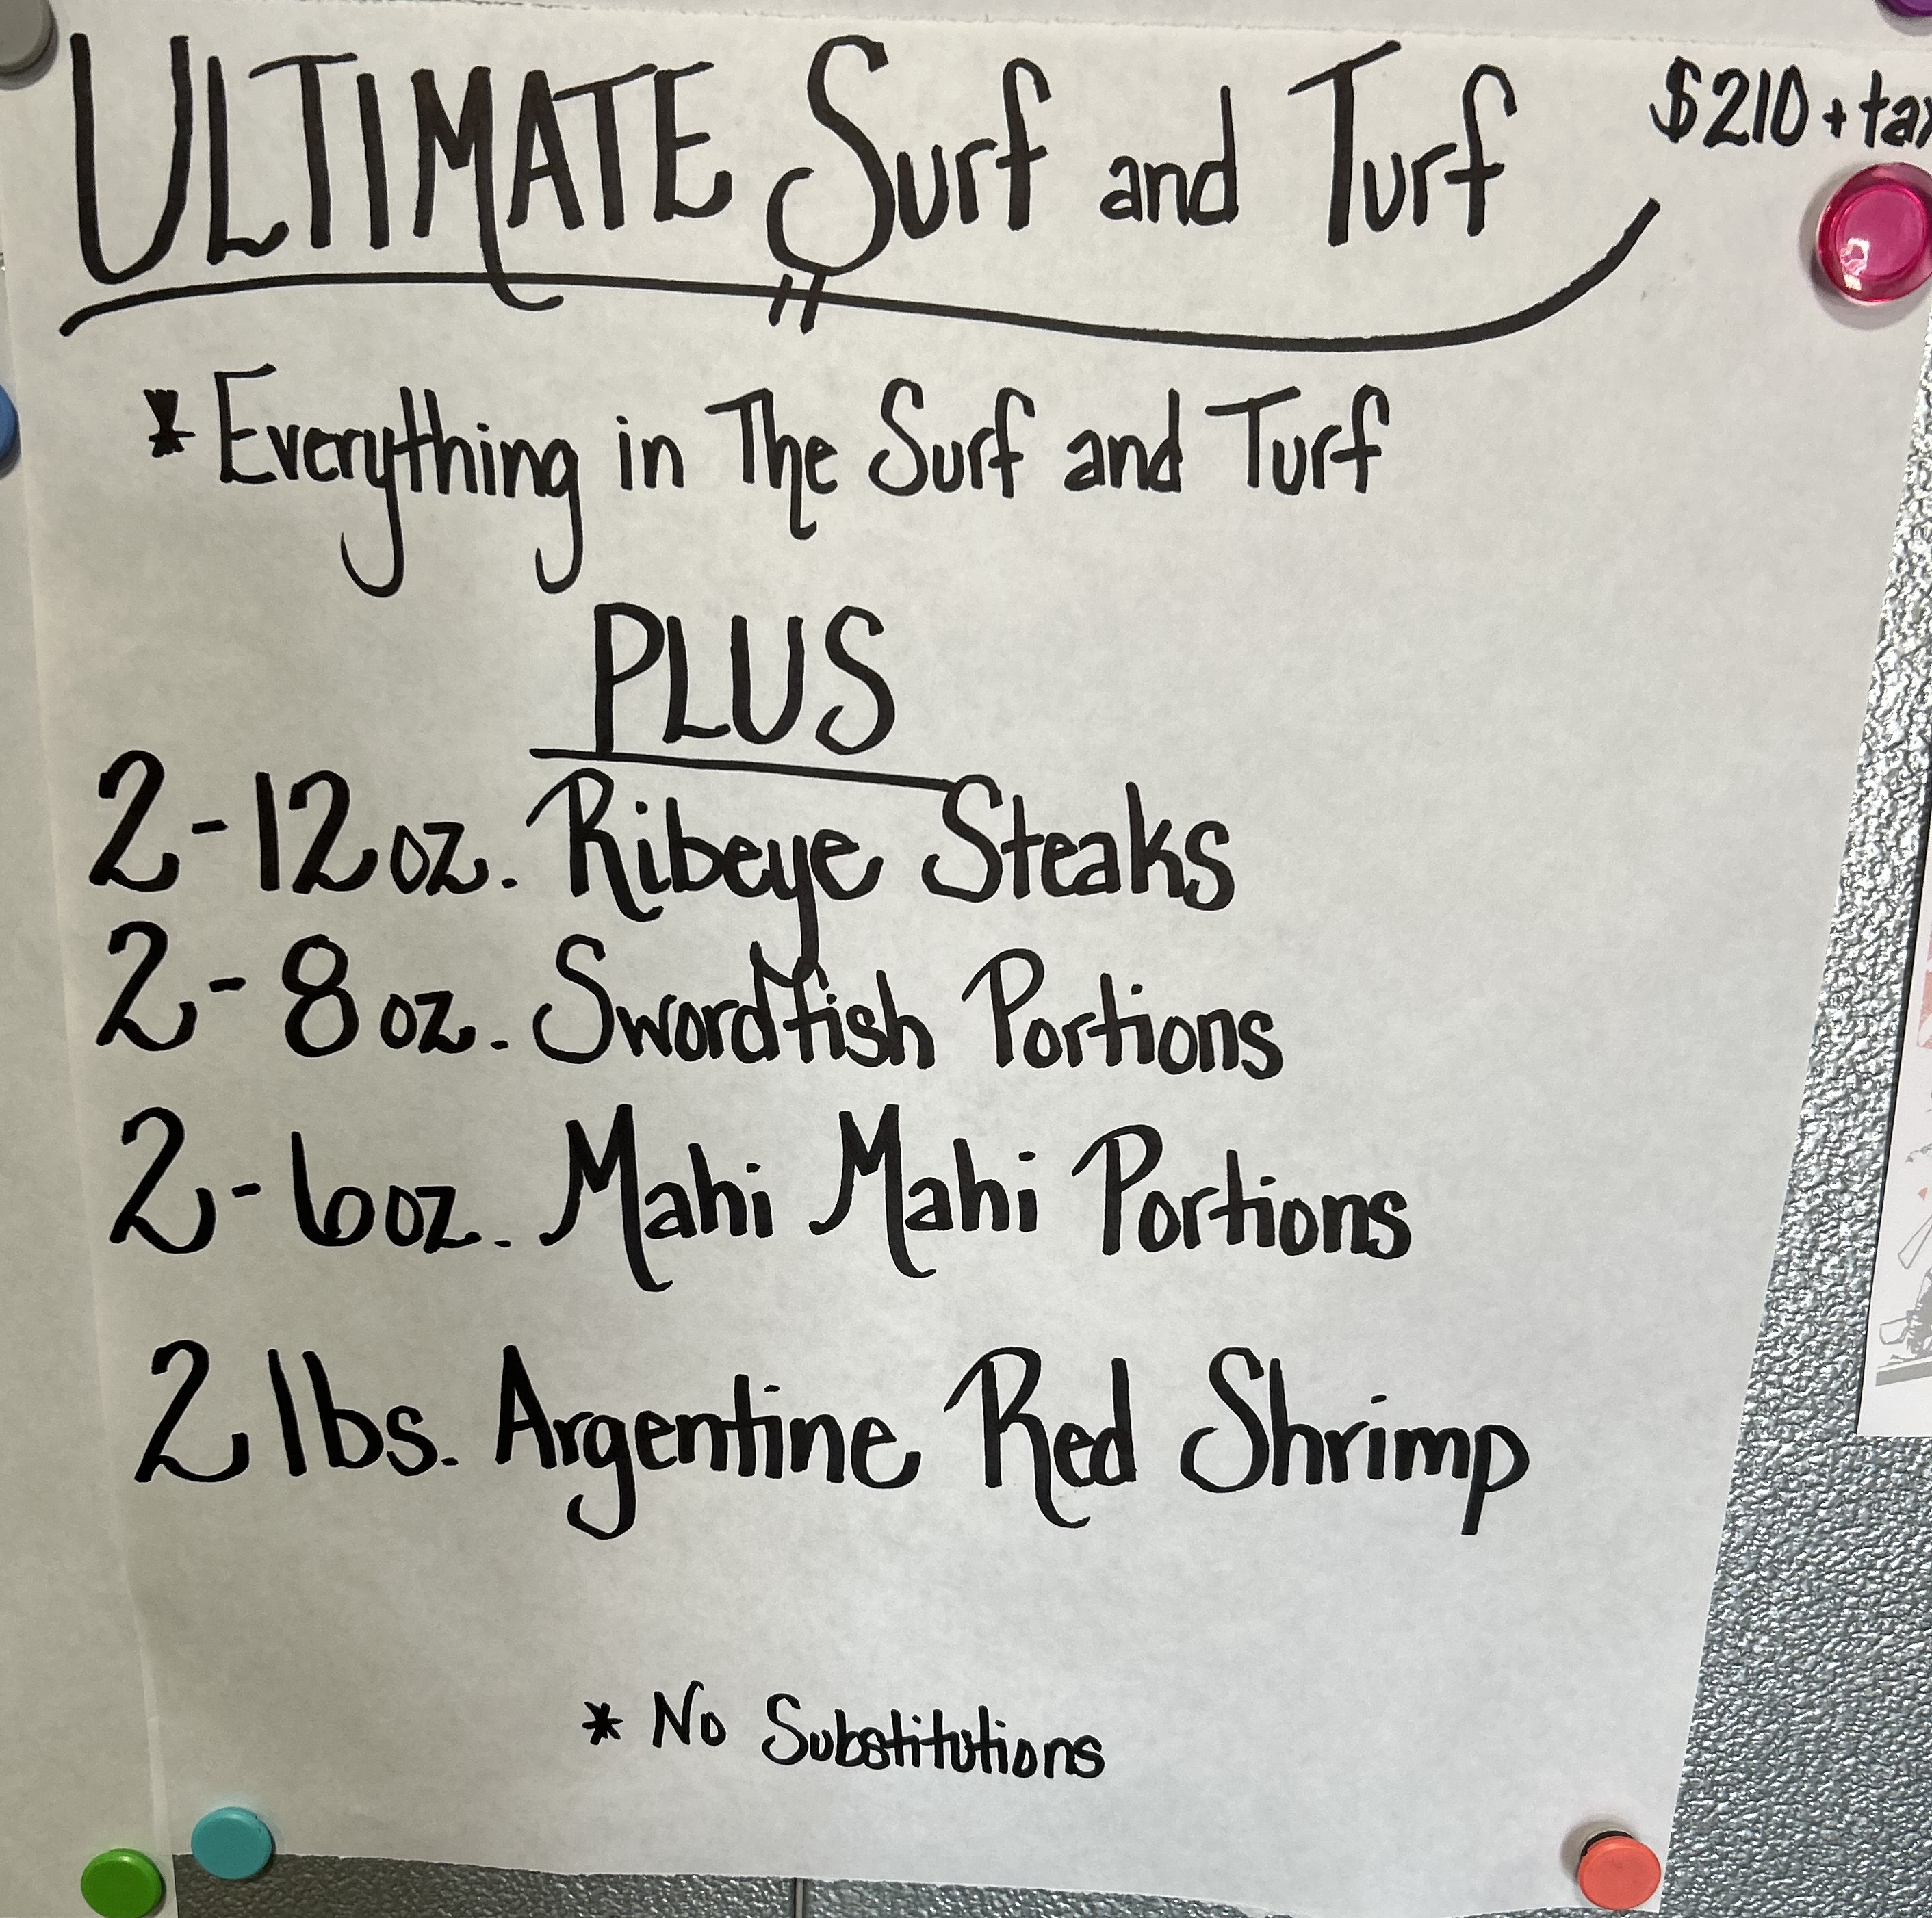 ULTIMATE Surf and Turf $210 + tax
* Everything in The Surf and Turf
PLUS
2-12 oz. Ribeye Steaks
2-8 oz. Swordfish Portions
2-6 oz. Mahi Mahi Portions
2 lbs. Argentine Red Shrimp
* No Substitutions